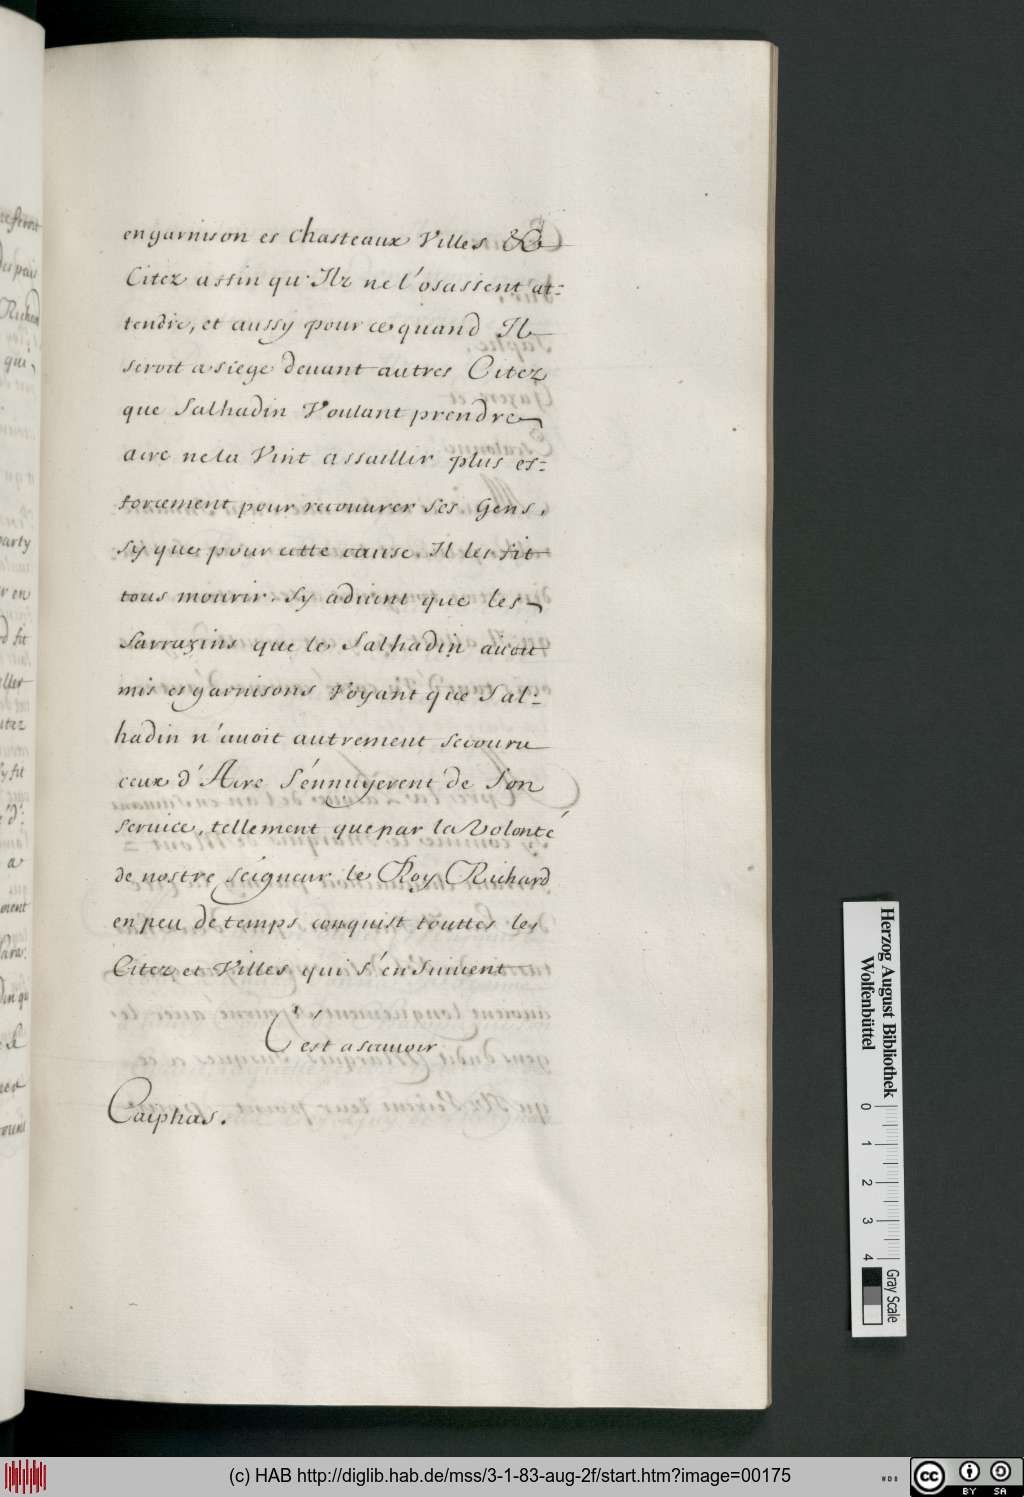 en garnison es Chasteaux Villes &
Citez affin qu'Ilz ne l'osassent at=
tendre, et aussy pour ce quand Il
seroit a siege deuant autres Citez
que Salhadin Voulant prendre
acre ne la Vint assaillir plus es=
forcement pour recouurer ses Gens,
sy que pour cette cause. Il les fit
tous mourir. Sy aduint que les
Sarrazins que le Salhadin auoit
mis es garnisons Voyant que Sal=
hadin n'auoit autrement secouru
ceux d'Acre S'énnuyerent de Son
seruice, tellement que par la Volonté
de nostre seigneur le Roy Richard
en peu de temps conquist touttes les
Citez et Villes qui s'ensuiuent
C'est a scauoir
Caiphas.
Herzog August Bibliothek
Wolfenbüttel
0 1 2 3 4
Gray Scale
(c) HAB http://diglib.hab.de/mss/3-1-83-aug-2f/start.htm?image=00175
WDB
cc
BY SA